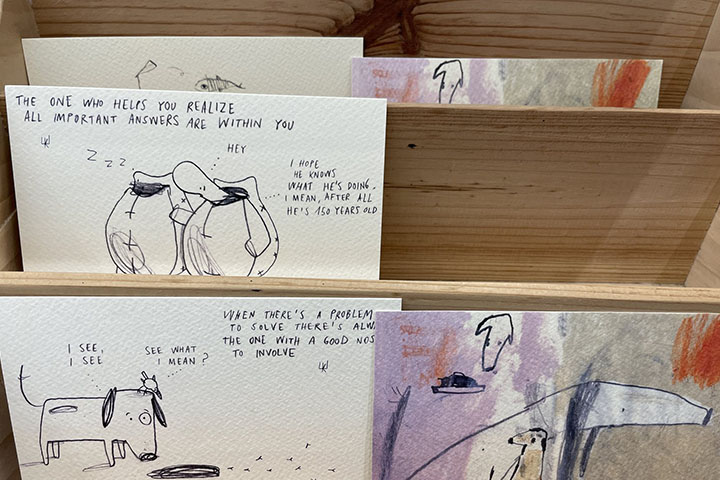 THE ONE WHO HELPS YOU REALIZE
ALL IMPORTANT ANSWERS ARE WITHIN YOU
Z Z Z
HEY
I HOPE
HE KNOWS
WHAT HE'S DOING.
I MEAN, AFTER ALL
HE'S 150 YEARS OLD
WHEN THERE'S A PROBLEM
TO SOLVE THERE'S
THE ONE WITH A GOOD
TO INVOLVE
I SEE,
I SEE
SEE WHAT
I MEAN?